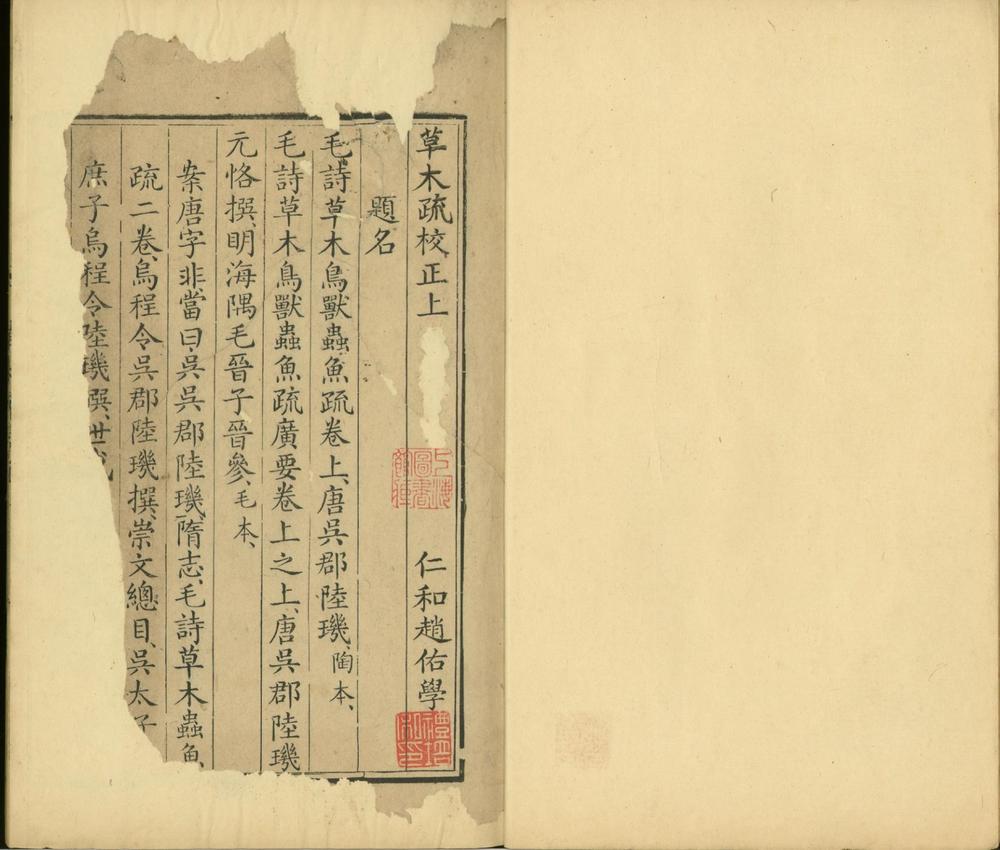 草木疏校正上
仁和趙佑學
題名
毛詩草木鳥獸蟲魚疏卷上、唐吳郡陸璣、陶本、
毛詩草木鳥獸蟲魚疏廣要卷上之上、唐吳郡陸璣
元恪撰、明海隅毛晉子晉參、毛本、
案唐字非、當曰吳、吳郡陸璣、隋志、毛詩草木蟲魚、
疏二卷、烏程令吳郡陸璣撰、崇文總目、吳太子
庶子烏程令陸璣撰、世或
圖書